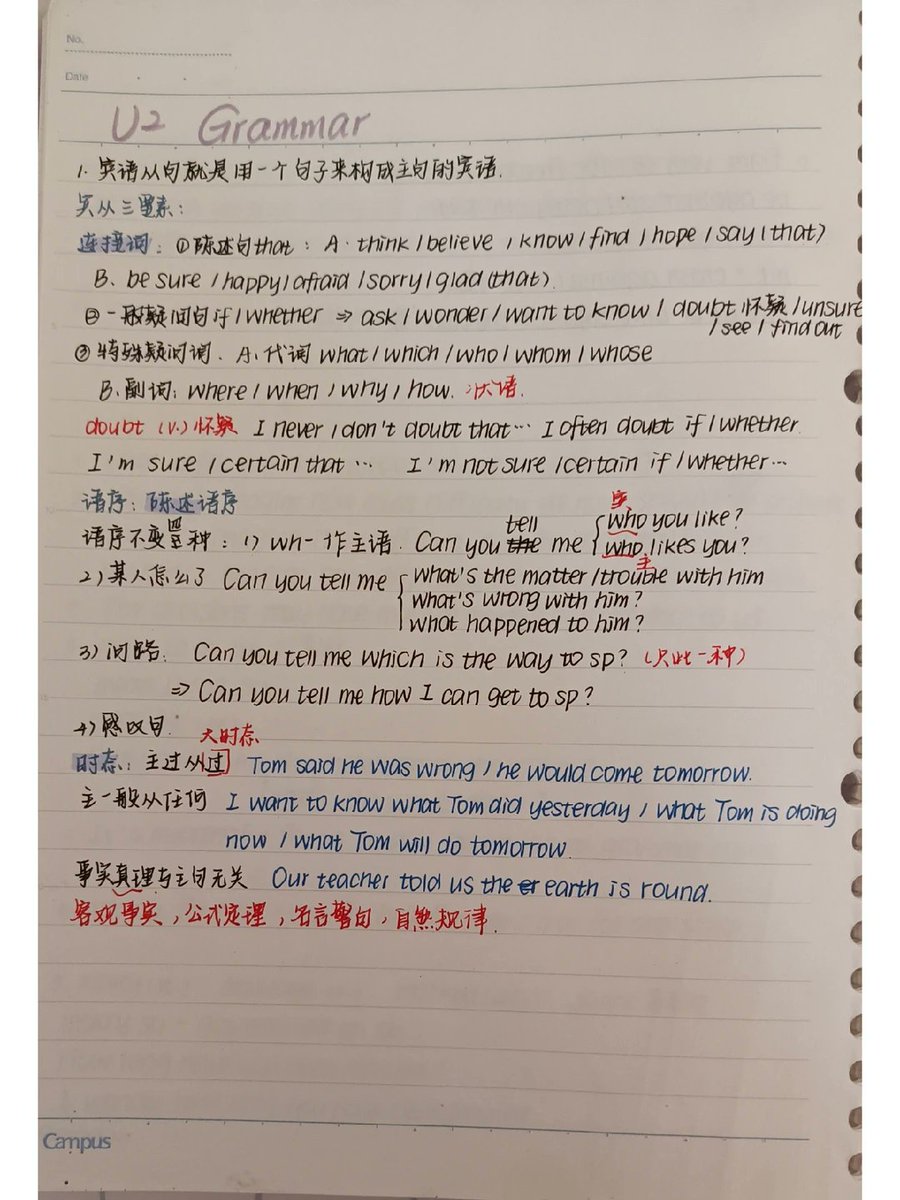 No.
Date
U2 Grammar
1. 宾语从句就是用一个句子来构成主句的宾语.
宾从三要素:
连接词: ①陈述句that: A. think / believe / know / find / hope / say (that)
B. be sure / happy / afraid / sorry / glad (that).
②一般疑问句if / whether ⇒ ask / wonder / want to know / doubt 怀疑 / unsure
/ see / find out
③特殊疑问词. A. 代词 what / which / who / whom / whose
B. 副词: where / when / why / how. 状语.
doubt (v.) 怀疑 I never / don't doubt that… I often doubt if / whether
I'm sure / certain that … I'm not sure / certain if / whether…
语序: 陈述语序
宾
语序不变四种: 1) wh- 作主语. Can you tell me who you like?
who likes you?
主
2) 某人怎么了 Can you tell me what's the matter / trouble with him
what's wrong with him?
what happened to him?
3) 问路. Can you tell me which is the way to sp? (只此一种)
⇒ Can you tell me how I can get to sp?
4) 感叹句.
大时态
时态: 主过从过 Tom said he was wrong / he would come tomorrow.
主一般从任何 I want to know what Tom did yesterday / what Tom is doing
now / what Tom will do tomorrow.
事实真理与主句无关 Our teacher told us the earth is round.
客观事实, 公式定理, 名言警句, 自然规律.
Campus